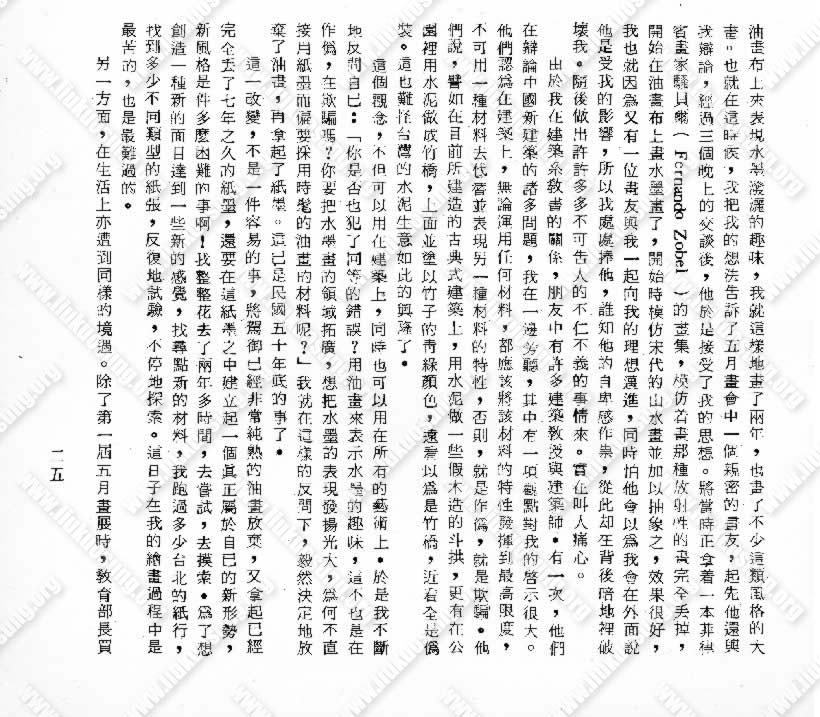 油畫布上來表現水墨潑灑的趣味，我就這樣地畫了兩年，也畫了不少這類風格的大
畫。也就在這時候，我把我的想法告訴了五月畫會中一個親密的畫友，起先他還與
我辯論，經過三個晚上的交談後，他於是接受了我的思想。將當時正拿着一本菲律
賓畫家騷貝爾（Fernando Zobel）的畫集，模仿若畫那種放射性的畫完全丟掉，
開始在油畫布上畫水墨畫了，開始時模仿宋代的山水畫並加以抽象之，效果很好，
我也就因為又有一位畫友與我一起向我的理想邁進，同時怕他會以為我會在外面說
他是受我的影響，所以我處處捧他，誰知他的自卑感作祟，從此却在背後暗地裡破
壞我。隨後做出許許多多不可告人的不仁不義的事情來。實在叫人痛心。
由於我在建築系教書的關係，朋友中有許多建築教授與建築師。有一次，他們
在辯論中國新建築的諸多問題，我在一邊旁聽，其中有一項觀點對我的啓示很大。
他們認為在建築上，無論運用任何材料，都應該將該材料的特性發揮到最高限度，
不可用一種材料去代替並表現另一種材料的特性，否則，就是作僞，就是欺騙。他
們說，譬如在目前所建造的古典式建築上，用水泥做一些假木造的斗拱，更有在公
園裡用水泥做成竹橋，上面並塗以竹子的青綠顏色，遠看以為是竹橋，近看全是僞
裝。這也難怪台灣的水泥生意如此的興隆了。
這個觀念，不但可以用在建築上，同時也可以用在所有的藝術上。於是我不斷
地反問自己：「你是否也犯了同等的錯誤？用油畫來表示水墨的趣味，這不也是在
作僞，在欺騙嗎？你要把水墨畫的領域拓廣，想把水墨的表現發揚光大，為何不直
接用紙墨而偏要採用時髦的油畫的材料呢？」我就在這樣的反問下，毅然決定地放
棄了油畫，再拿起了紙墨。這已是民國五十年底的事了。
這一改變，不是一件容易的事，將駕御已經非常純熟的油畫放棄，又拿起已經
完全丟了七年之久的紙墨，還要在這紙墨之中建立起一個眞正屬於自已的新形勢，
新風格是件多麼困難的事啊！我整整花去了兩年多時間，去嘗試，去摸索。爲了想
創造一種新的面目達到一些新的感覺，找尋點新的材料，我跑過多少台北的紙行，
找到多少不同類型的紙張，反復地試驗，不停地探索。這日子在我的繪畫過程中是
最苦的，也是最難過的。
另一方面，在生活上亦遭到同樣的境遇。除了第一屆五月畫展時，教育部長買
二五
www.inkling.com.tw